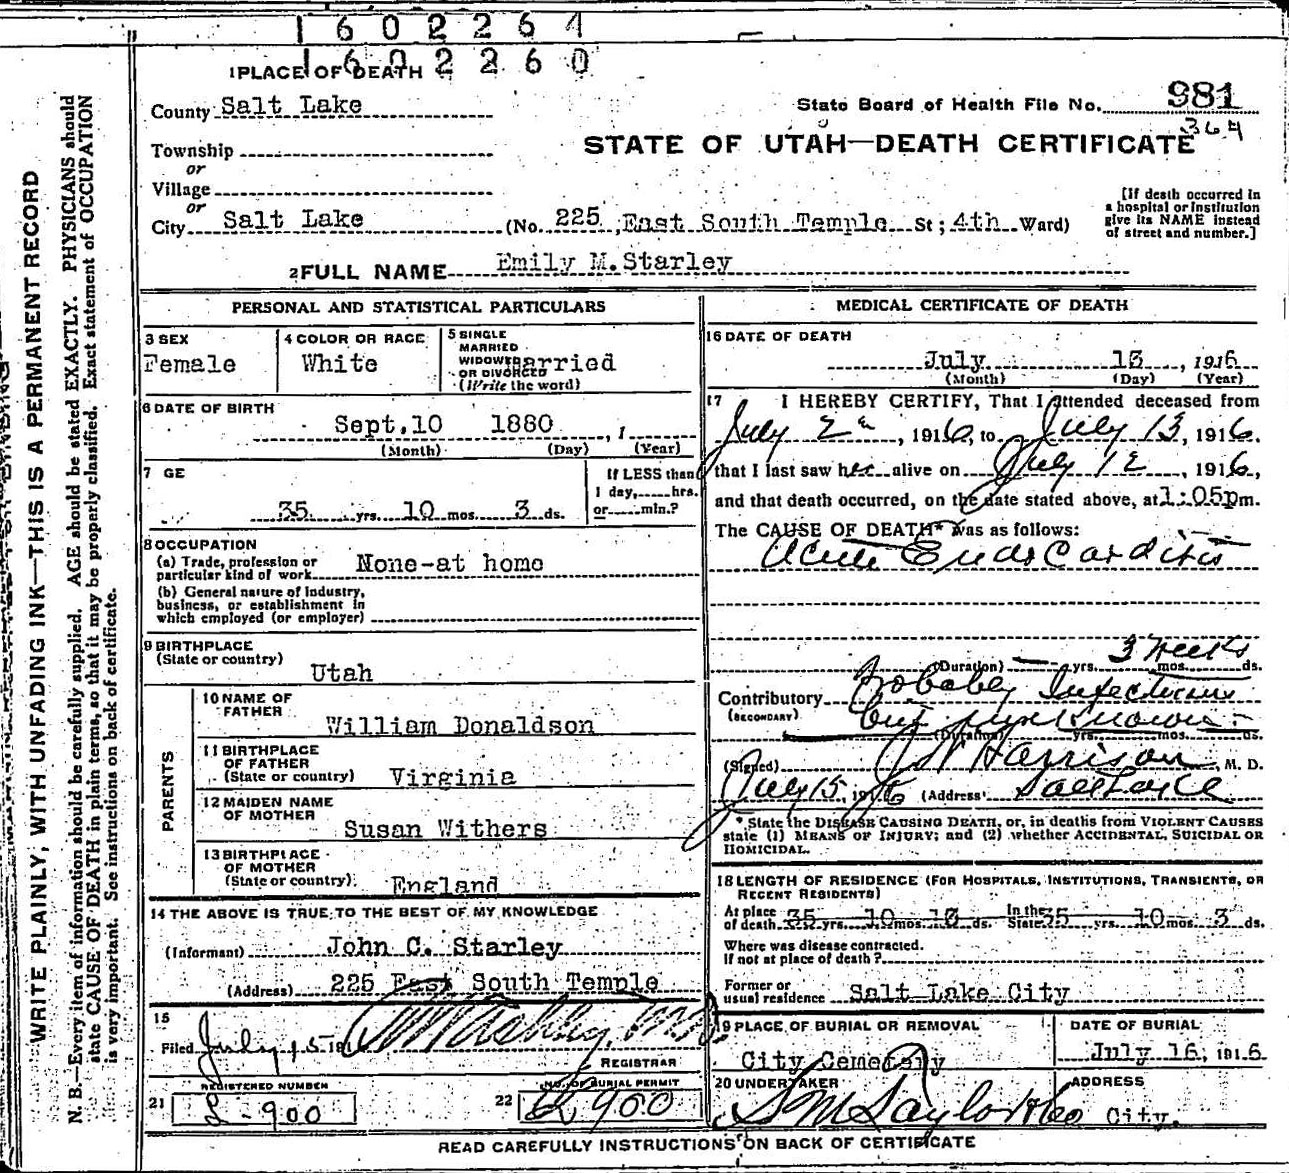 1602264
1602260
WRITE PLAINLY, WITH UNFADING INK—THIS IS A PERMANENT RECORD
N. B.—Every item of information should be carefully supplied. AGE should be stated EXACTLY. PHYSICIANS should
state CAUSE OF DEATH in plain terms, so that it may be properly classified. Exact statement of OCCUPATION
is very important. See instructions on back of certificate.
1 PLACE OF DEATH
County Salt Lake
Township
or
Village
or
City Salt Lake (No. 225 East South Temple St; 4th Ward)
State Board of Health File No. 981
364
STATE OF UTAH—DEATH CERTIFICATE
[If death occurred in
a hospital or institution
give its NAME instead
of street and number.]
2 FULL NAME Emily M. Starley
PERSONAL AND STATISTICAL PARTICULARS
3 SEX
Female
4 COLOR OR RACE
White
5 SINGLE
MARRIED
WIDOWED
OR DIVORCED
(Write the word)
Married
6 DATE OF BIRTH
Sept. 10 1880, 1
(Month) (Day) (Year)
7 GE
35 yrs. 10 mos. 3 ds.
If LESS than
1 day, hrs.
or min.?
8 OCCUPATION
(a) Trade, profession or
particular kind of work None-at home
(b) General nature of Industry,
business, or establishment in
which employed (or employer)
9 BIRTHPLACE
(State or country)
Utah
PARENTS
10 NAME OF
FATHER
William Donaldson
11 BIRTHPLACE
OF FATHER
(State or country) Virginia
12 MAIDEN NAME
OF MOTHER
Susan Withers
13 BIRTHPLACE
OF MOTHER
(State or country) England
14 THE ABOVE IS TRUE TO THE BEST OF MY KNOWLEDGE
(Informant) John C. Starley
(Address) 225 East South Temple
15
Filed July 15 191
REGISTRAR
REGISTERED NUMBER
21 L-900
NO. OF BURIAL PERMIT
22 L 900
MEDICAL CERTIFICATE OF DEATH
16 DATE OF DEATH
July 13, 1916
(Month) (Day) (Year)
17 I HEREBY CERTIFY, That I attended deceased from
July 2nd, 1916, to July 13, 1916.
that I last saw her alive on July 12, 1916,
and that death occurred, on the date stated above, at 1:05pm.
The CAUSE OF DEATH* was as follows:
Acute Endocarditis
3 weeks
(Duration) yrs. mos. ds.
Contributory Probabley Infectious
(SECONDARY) but unknown
(Duration) yrs. mos. ds.
(Signed) Harrison M. D.
July 15, 1916 (Address) Salt Lake
* State the DISEASE CAUSING DEATH, or, in deaths from VIOLENT CAUSES
state (1) MEANS OF INJURY; and (2) whether ACCIDENTAL, SUICIDAL OR
HOMICIDAL.
18 LENGTH OF RESIDENCE (FOR HOSPITALS, INSTITUTIONS, TRANSIENTS, OR
RECENT RESIDENTS)
At place
of death 35 yrs. 10 mos. 13 ds. In the
State 35 yrs. 10 mos. 3 ds.
Where was disease contracted.
if not at place of death?
Former or
usual residence Salt Lake City
19 PLACE OF BURIAL OR REMOVAL
City Cemetery
DATE OF BURIAL
July 16, 1916
20 UNDERTAKER
S M Taylor & Co
ADDRESS
City.
READ CAREFULLY INSTRUCTIONS ON BACK OF CERTIFICATE